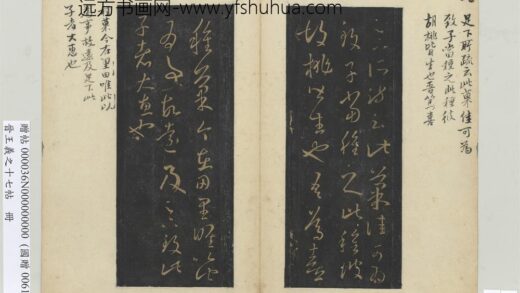 远方书画网-www.yfshuhua.com
足下所疏云此菓佳可為
致子當種之此種彼
胡桃皆生也吾篤喜
足下所疏云此菓佳可為
致子當種之此種彼
胡桃皆生也吾篤喜
種菓今在田里唯以此
為事故遠及足下致此
子者大惠也
菓今在田里唯此以
事故遠及足下此
子者大惠也
贈帖 000036N000000000 (國贈 0061
晉王羲之十七帖 冊